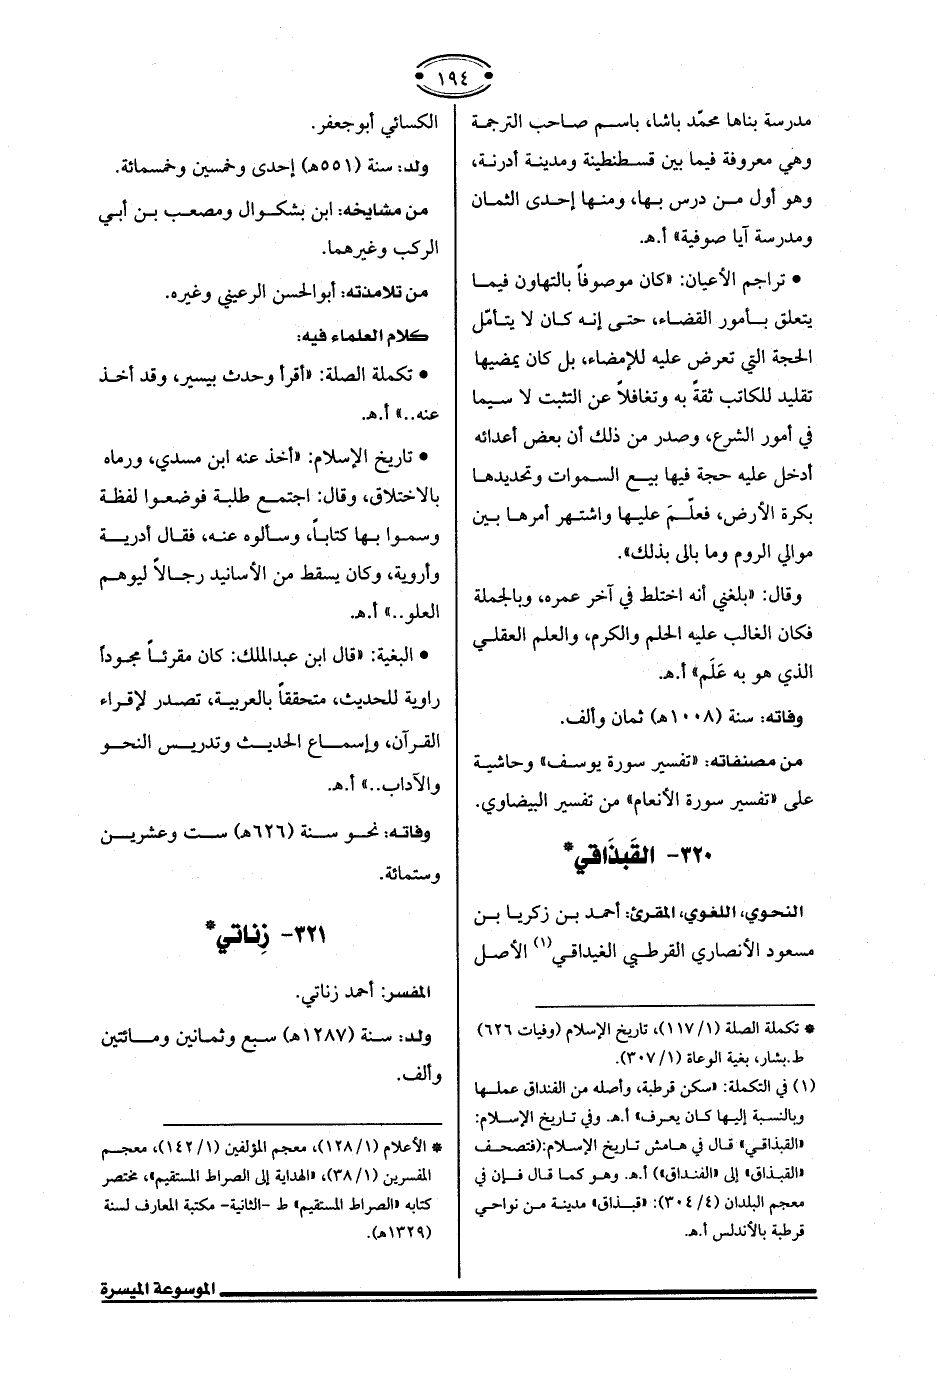 ١٩٤
مدرسة بناها محمّد باشا، باسم صاحب الترجمة
وهي معروفة فيما بين قسطنطينة ومدينة أدرنة،
وهو أول من درس بها، ومنها إحدى الثمان
ومدرسة آيا صوفية» أ.هـ.
• تراجم الأعيان: «كان موصوفاً بالتهاون فيما
يتعلق بأمور القضاء، حتى إنه كان لا يتأمّل
الحجة التي تعرض عليه للإمضاء، بل كان يمضيها
تقليد للكاتب ثقةً به وتغافلاً عن التثبت لا سيما
في أمور الشرع، وصدر من ذلك أن بعض أعدائه
أدخل عليه حجة فيها بيع السموات وتحديدها
بكرة الأرض، فعلّمَ عليها واشتهر أمرها بين
موالي الروم وما بالى بذلك».
وقال: «بلغني أنه اختلط في آخر عمره، وبالجملة
فكان الغالب عليه الحلم والكرم، والعلم العقلي
الذي هو به عَلَم» أ.هـ.
وفاته: سنة (١٠٠٨هـ) ثمان وألف.
من مصنفاته: «تفسير سورة يوسف» وحاشية
على «تفسير سورة الأنعام» من تفسير البيضاوي.
٣٢٠- القَبذَاقي*
النحوي، اللغوي، المقرئ: أحمد بن زكريا بن
مسعود الأنصاري القرطبي الغيداقي(١) الأصل
* تكملة الصلة (١/١١٧)، تاريخ الإسلام (وفيات ٦٢٦)
ط.بشار، بغية الوعاة (١/٣٠٧).
(١) في التكملة: «سكن قرطبة، وأصله من الفنداق عملها
وبالنسبة إليها كان يعرف» أ.هـ. وفي تاريخ الإسلام:
«القبذاقي» قال في هامش تاريخ الإسلام:(فتصحف
«القبذاق» إلى «الفنداق») أ.هـ. وهو كما قال فإن في
معجم البلدان (٤/٣٠٤): «قبذاق» مدينة من نواحي
قرطبة بالأندلس أ.هـ.
الكسائي أبو جعفر.
ولد: سنة (٥٥١هـ) إحدى وخمسين وخمسمائة.
من مشايخه: ابن بشكوال ومصعب بن أبي
الركب وغيرهما.
من تلامذته: أبو الحسن الرعيني وغيره.
كلام العلماء فيه:
• تكملة الصلة: «أقرأ وحدث بيسير، وقد أخذ
عنه..» أ.هـ.
• تاريخ الإسلام: «أخذ عنه ابن مسدي، ورماه
بالاختلاق، وقال: اجتمع طلبة فوضعوا لفظة
وسموا بها كتاباً، وسألوه عنه، فقال أدرية
وأروية، وكان يسقط من الأسانيد رجالاً ليوهم
العلو..» أ.هـ.
• البغية: «قال ابن عبدالملك: كان مقرئاً مجوداً
راوية للحديث، متحققاً بالعربية، تصدر لإقراء
القرآن، وإسماع الحديث وتدريس النحو
والآداب..» أ.هـ.
وفاته: نحو سنة (٦٢٦هـ) ست وعشرين
وستمائة.
٣٢١- زِناتي*
المفسر: أحمد زناتي.
ولد: سنة (١٢٨٧هـ) سبع وثمانين ومائتين
وألف.
* الأعلام (١/١٢٨)، معجم المؤلفين (١/١٤٢)، معجم
المفسرين (١/٣٨)، «الهداية إلى الصراط المستقيم»، مختصر
كتابه «الصراط المستقيم» ط -الثانية- مكتبة المعارف لسنة
(١٣٢٩هـ).
الموسوعة الميسرة